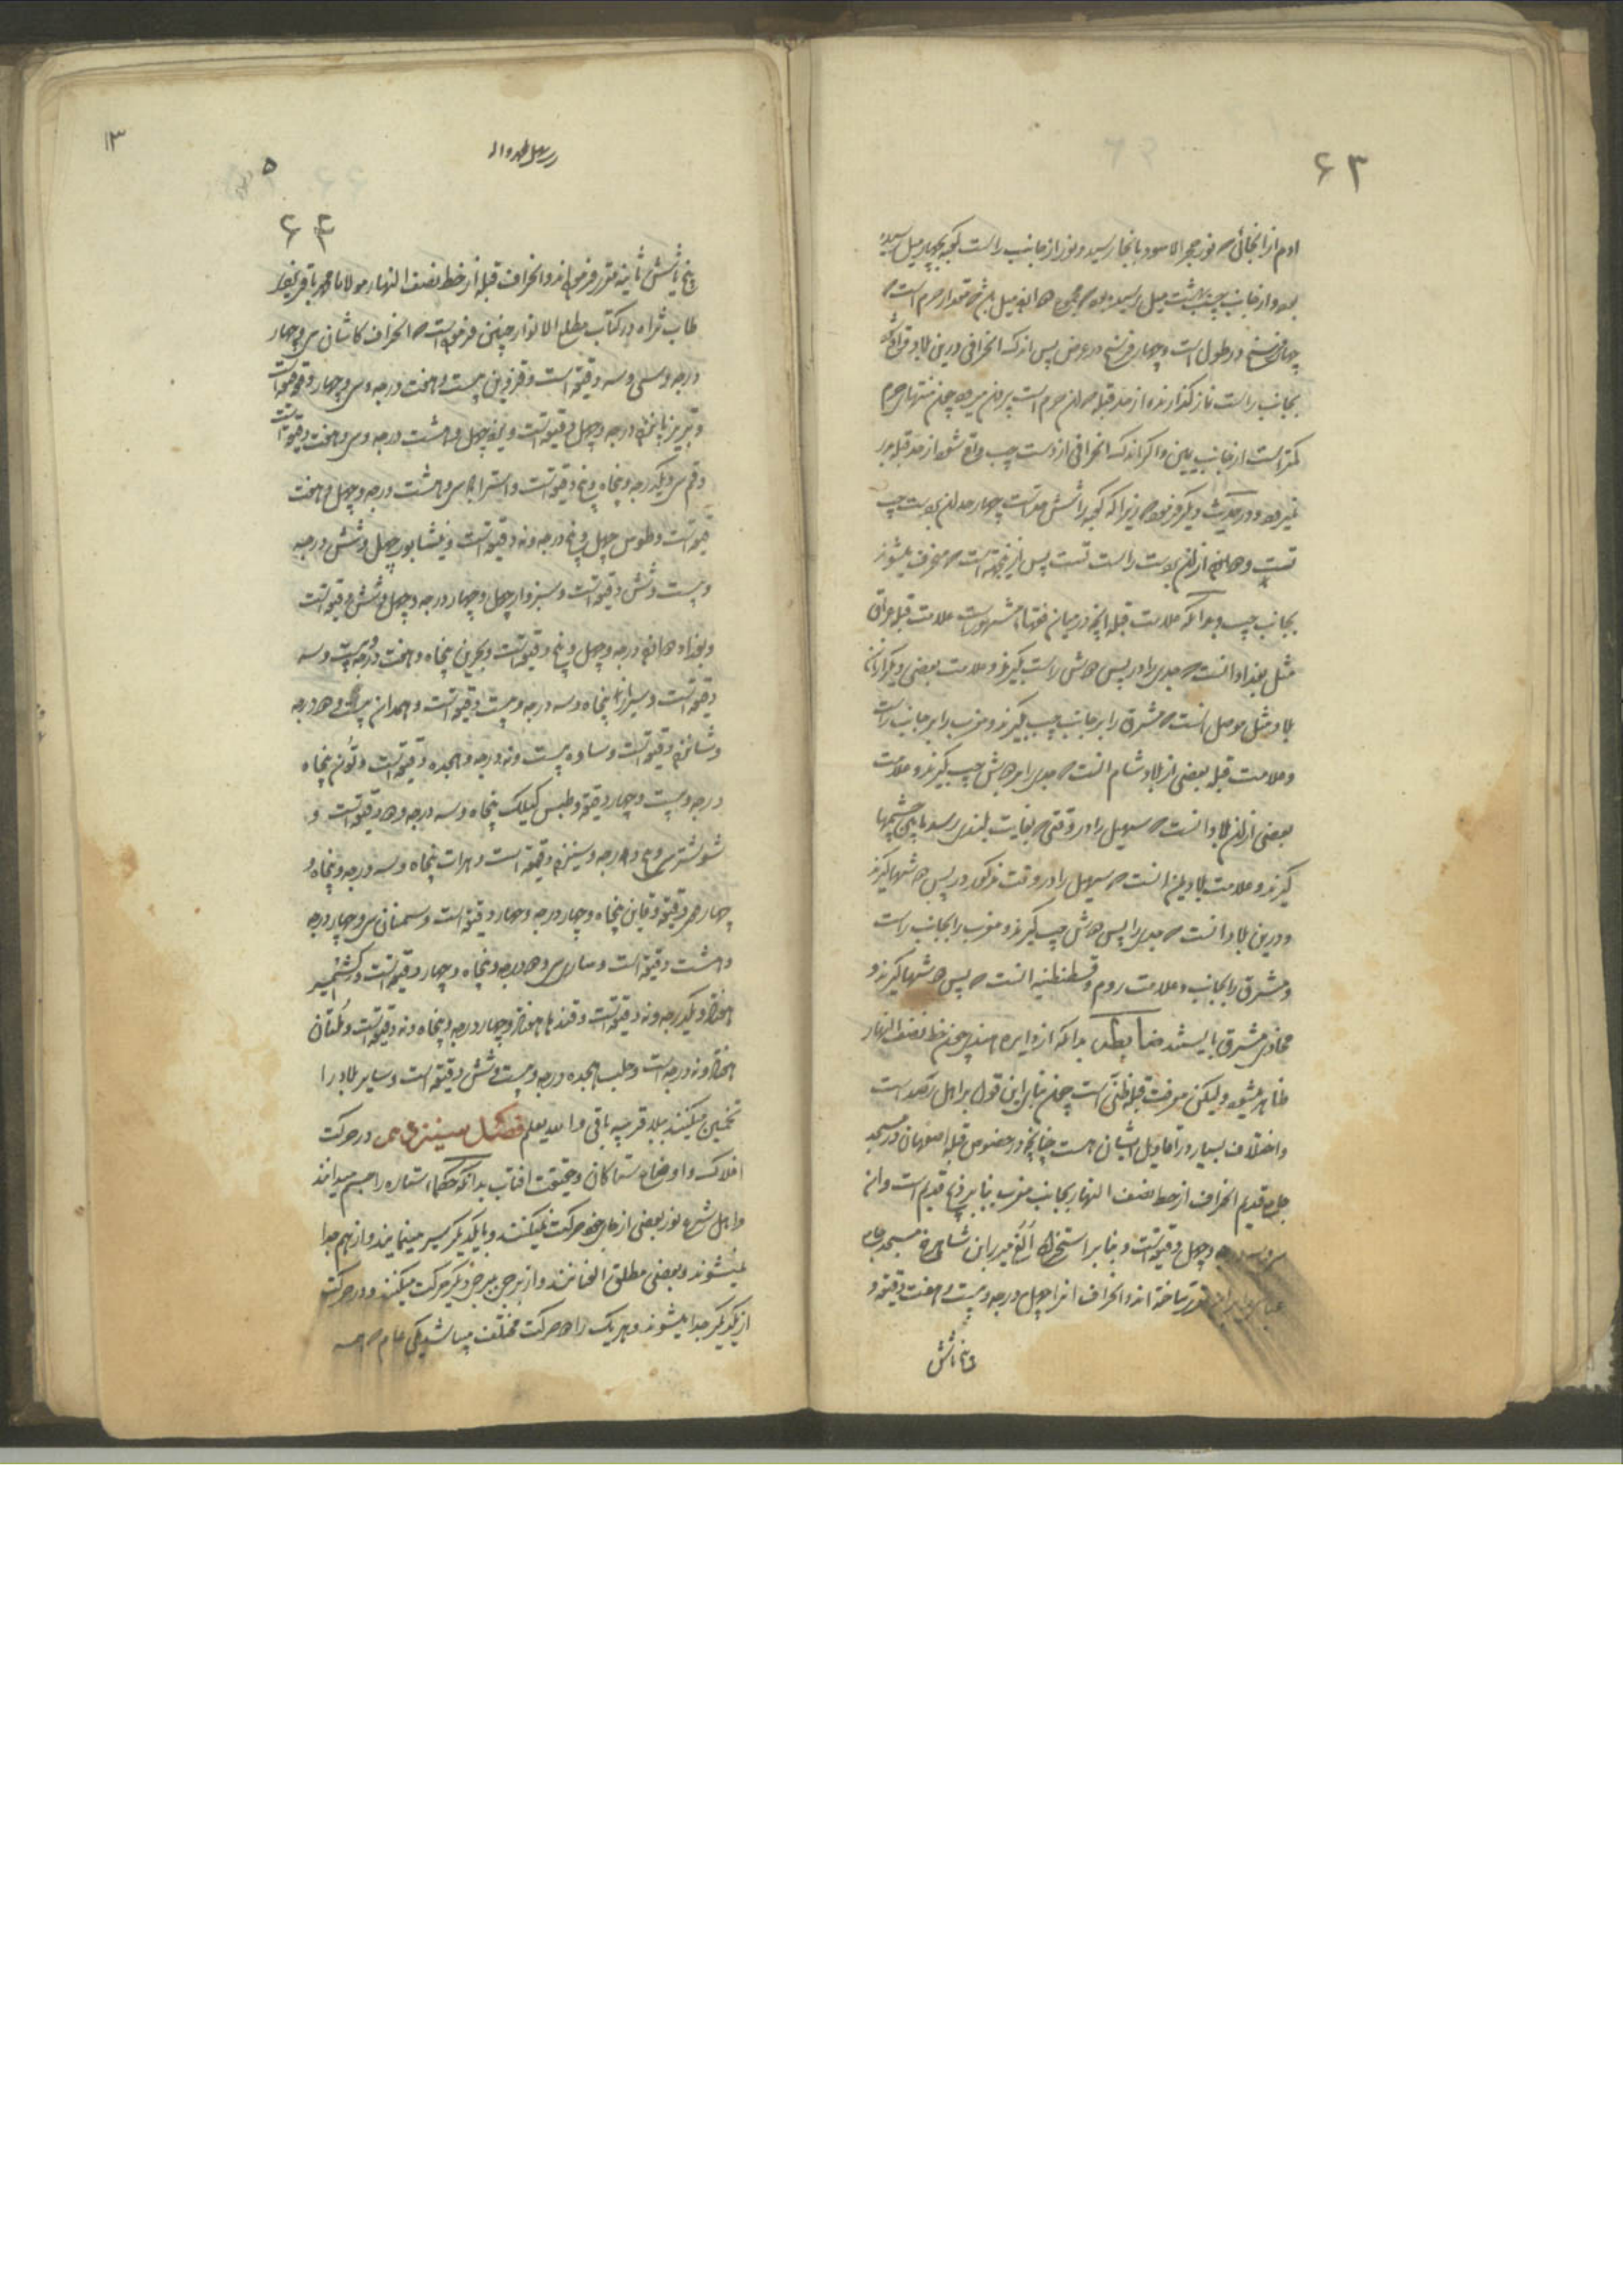 ۶۳
ادم از انجائی که نور حجر الاسود بانجا رسید و نور از جانب راست کعبه بچهار میل رسیده
بود و از جانب چپ بهشت میل رسیده بود که مجموع دوازده میل باشد مقدار حرم است که
چهار فرسخ در طول است و چهار فرسخ در عرض پس اندک انحرافی درین بلاد واقع شود
بجانب راست نماز گذارنده از حد قبله که ان حرم است بیرون میرود چون منتهای حرم
کمتر است از جانب یمین و اگر اندک انحرافی از دست چپ واقع شود از حد قبله بدر
نمیرود و در حدیث دیگر فرمود که زیرا که کعبه را شش حد است چهار حد ان بدست چپ
تست و دو حد از ان بدست راست تست پس از این جهتست که منحرف میشوند
بجانب چپ و بدانکه علامت قبله انچه در میان فقها مشهور است علامت قبله عراق
مثل بغداد انست که جدی را در پس دوش راست گیرند و علامت بعضی دیگر از ان
بلاد مثل موصل است که مشرق را بر جانب چپ گیرند و مغرب را بر جانب راست
و علامت قبله بعضی از بلاد شام انست که جدی را بر دوش چپ گیرند و علامت
بعضی از ان بلاد انست که سهیل را در وقتی که بغایت بلندی رسد ما بین چشمها
گیرند و علامت بلاد یمن انست که سهیل را در وقت مذکور در پس دوشها گیرند
و درین بلاد انست که جدی را پس دوش چپ گیرند و مغرب را بجانب راست
و مشرق را بجانب و علامت روم و قسطنطنیه انست که پس دوشها گیرند و
محاذی مشرق بایستند ضابطه بدانکه از دایره هندی چون خط نصف النهار
ظاهر میشود و لیکن معرفت قبله ظنی است چون بنای این قول بر اهل رصد است
و اختلاف بسیار در اقاویل ایشان هست چنانچه در خصوص قبله اصفهان در مسجد
جامع قدیم انحراف از خط نصف النهار بجانب مغرب بنابر زیج قدیم است و ان
سی و سه درجه و چهل دقیقه است و بنابر استخراج الغ میرزا ابن شاهرخ مسجد جامع
عباسی را بر ان مقرر ساخته اند و انحراف انرا چهل درجه و بیست و هفت دقیقه و
پنج یا شش
۱۳
۵
۶۴
پنج یا شش ثانیه مقرر فرموده اند و انحراف قبله از خط نصف النهار مولانا محمد باقر یزدی
طاب ثراه در کتاب مطلع الانوار چنین فرموده است که انحراف کاشان سی و چهار
درجه و سی و سه دقیقه است و قزوین بیست و هفت درجه و سی و چهار دقیقه است
و تبریز پانزده درجه و چهل دقیقه است و یزد چهل و هشت درجه و سی و هفت دقیقه است
و قم سی و یکدرجه و پنجاه و پنج دقیقه است و استراباد سی و هشت درجه و چهل و هفت
دقیقه است و طوس چهل و پنج درجه و نه دقیقه است و نیشابور چهل و شش درجه
و بیست و شش دقیقه است و سبزوار چهل و چهار درجه و چهل و شش دقیقه است
و بغداد دوازده درجه و چهل و پنج دقیقه است و بحرین پنجاه و هفت درجه و بیست و سه
دقیقه است و شیراز پنجاه و سه درجه و بیست دقیقه است و همدان بیست و دو درجه
و شانزده دقیقه است و ساوه بیست و نه درجه و هجده دقیقه است و تون پنجاه
درجه و بیست و چهار دقیقه و طبس گیلک پنجاه و سه درجه و دو دقیقه است و
شوشتر سی و پنج درجه و سیزده دقیقه است و هرات پنجاه و سه درجه و پنجاه و
چهار دقیقه و قاین پنجاه و چهار درجه و چهار دقیقه است و سمنان سی و چهار درجه
و هشت دقیقه است و ساری سی و دو درجه و پنجاه و چهار دقیقه است و کشمیر
هفتاد و یکدرجه و نه دقیقه است و قندهار هفتاد و چهار درجه و پنجاه و نه دقیقه است و ملتان
هفتاد و نه درجه است و حلب هجده درجه و بیست و شش دقیقه است و سایر بلاد را
تخمین میکنند ببلد قریبه باقی و الله یعلم فصل سیزدهم در حرکت
افلاک و اوضاع ستارکان و حقیقت افتاب بدانکه حکما ستاره را جسم میدانند
و اهل شرع نور بعضی از جای خود حرکت نمیکنند و با یکدیگر سیر مینمایند و از هم جدا
نمیشوند و بعضی مطلق العنانند و از برجی ببرج دیگر حرکت میکنند و در حرکت
از یکدیگر جدا میشوند و هر یک را دو حرکت مختلف میباشد یکی عام که همه